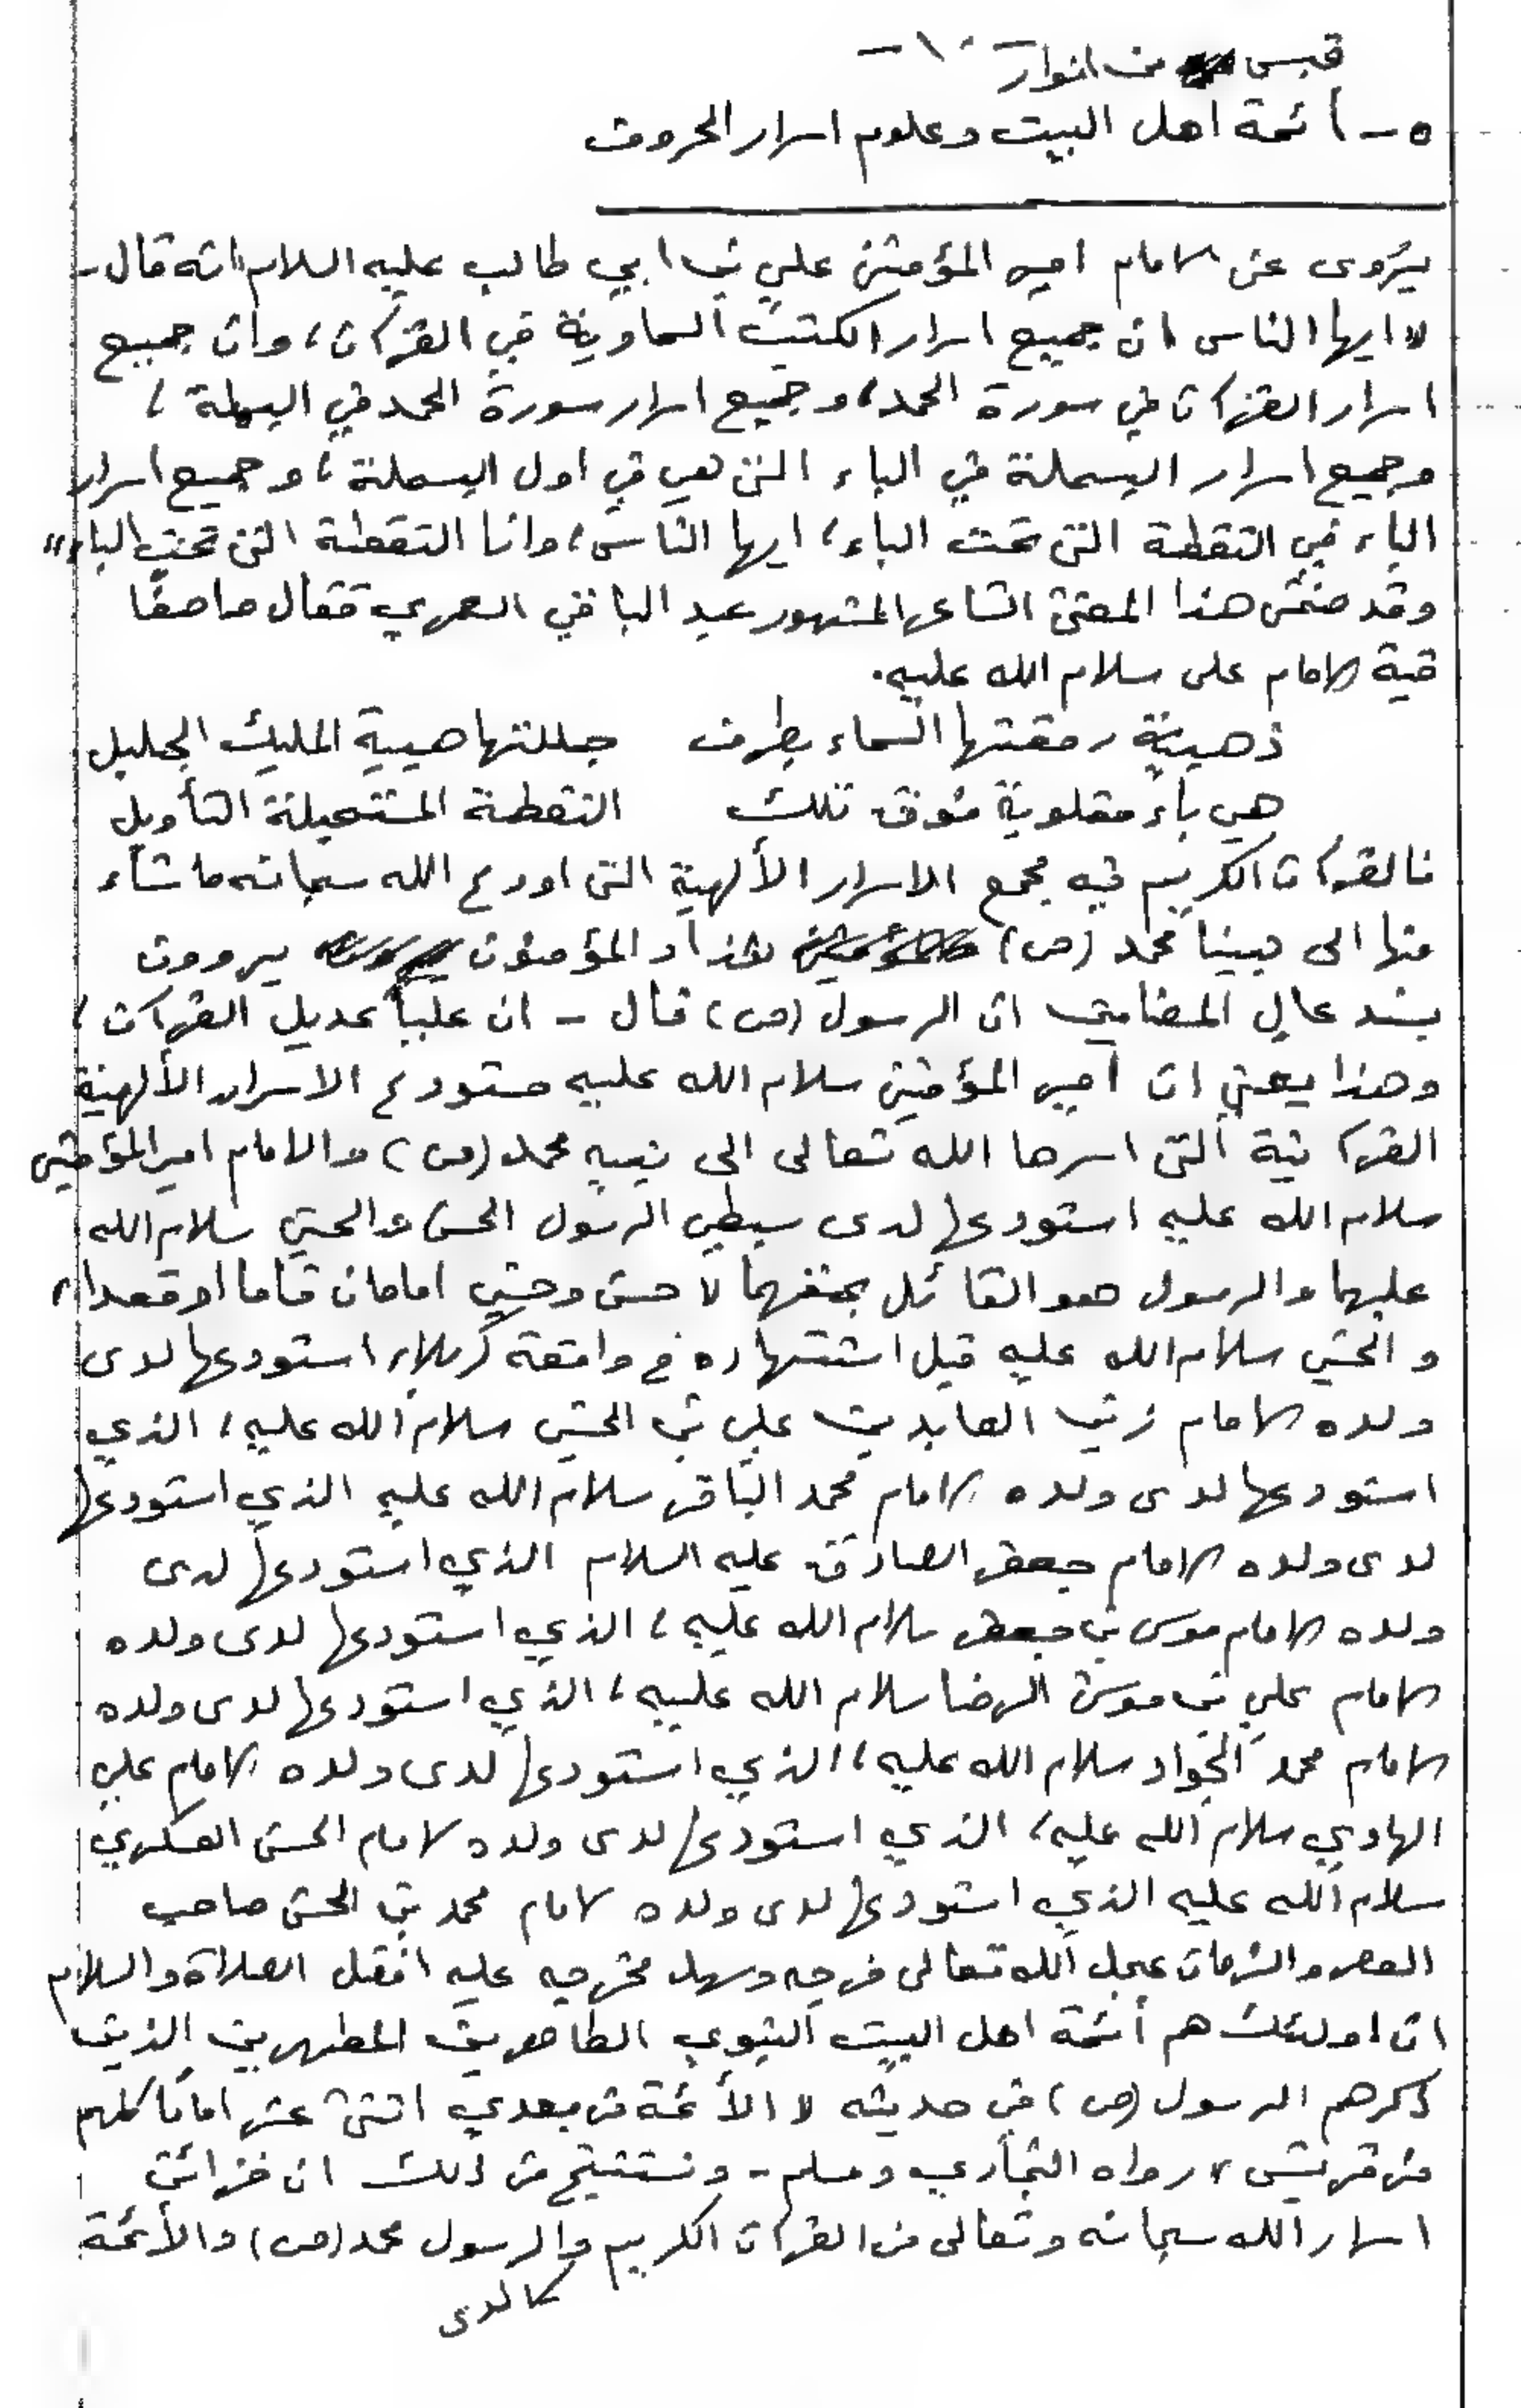 قبس من انوار -١٠-
٥- أئمة اهل البيت وعلوم اسرار الحروف
يُروى عن الامام امير المؤمنين علي بن ابي طالب عليه السلام انه قال-
"ايها الناس ان جميع اسرار الكتب السماوية في القرآن، وان جميع
اسرار القرآن في سورة الحمد، وجميع اسرار سورة الحمد في البسملة،
وجميع اسرار البسملة في الباء التي هي في اول البسملة، وجميع اسرار
الباء في النقطة التي تحت الباء، ايها الناس، وانا النقطة التي تحت الباء"
وقد ضمّن هذا المعنى الشاعر المشهور عبد الباقي العمري فقال واصفًا
قبة الامام على سلام الله عليه.
ذهبية رمقتها السماء بطرف جللتها هيبة المليك الجليل
هي باء مقلوبة فوق تلك النقطة المستحيلة التأويل
فالقرآن الكريم فيه مجمع الاسرار الألهية التي اودع الله سبحانه ما شاء
منها الى نبينا محمد (ص) المؤمنون يروون
بسند عالٍ المضامين ان الرسول (ص) قال - ان علياً عديل القرآن،
وهذا يعني ان أمير المؤمنين سلام الله عليه مستودع الاسرار الألهية
القرآنية التي اسرها الله تعالى الى نبيه محمد (ص) والامام امير المؤمنين
سلام الله عليه استودعها لدى سبطي الرسول الحسن والحسين سلام الله
عليهما والرسول هو القائل بحقهما "حسن وحسين امامان قاما او قعدا"
والحسين سلام الله عليه قبل استشهاده في واقعة كربلاء استودعها لدى
ولده الامام زين العابدين علي بن الحسين سلام الله عليه، الذي
استودعها لدى ولده الامام محمد الباقر سلام الله عليه الذي استودعها
لدى ولده الامام جعفر الصادق عليه السلام الذي استودعها لدى
ولده الامام موسى بن جعفر سلام الله عليه، الذي استودعها لدى ولده
الامام علي بن موسى الرضا سلام الله عليه، الذي استودعها لدى ولده
الامام محمد الجواد سلام الله عليه، الذي استودعها لدى ولده الامام علي
الهادي سلام الله عليه، الذي استودعها لدى ولده الامام الحسن العسكري
سلام الله عليه الذي استودعها لدى ولده الامام محمد بن الحسن صاحب
العصر والزمان عجل الله تعالى فرجه وسهل مخرجه عليه افضل الصلاة والسلام
ان اولئك هم أئمة اهل البيت النبوي الطاهرين المطهرين الذين
ذكرهم الرسول (ص) في حديثه "الأئمة من بعدي اثنى عشر امامًا كلهم
من قريش" رواه البخاري ومسلم - ونستنتج من ذلك ان خزائن
اسرار الله سبحانه وتعالى من القرآن الكريم والرسول محمد (ص) والأئمة
كالدى